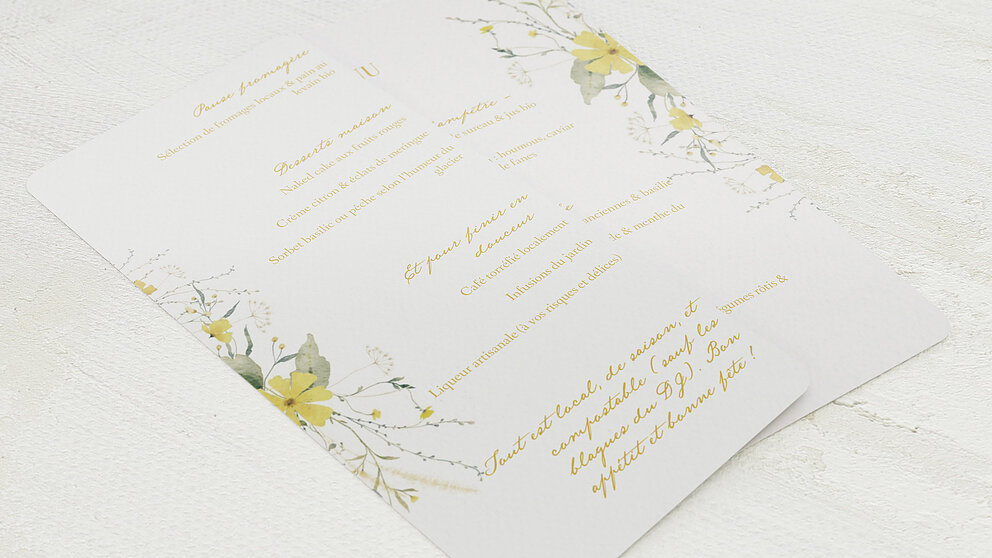 Pause fromagère
Sélection de fromages locaux & pain au
levain bio
Desserts maison
Naked cake aux fruits rouges
Crème citron & éclats de meringue
Sorbet basilic au pêche selon l'humeur du
glacier
Et pour finir en
douceur
Café torréfié localement
Infusions du jardin
Liqueur artisanale (à vos risques et délices)
Tout est local, de saison, et
compostable (sauf les
blagues du DJ). Bon
appétit et bonne fête !
U
ampêtre –
e sureau & jus bio
houmous, caviar
de fanes
anciennes & basilic
& menthe du
gumes rôtis &